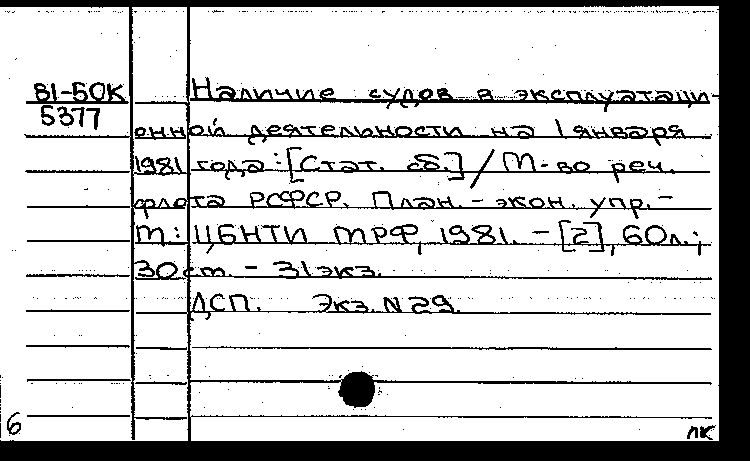 81-50К Наличие судов в эксплуатаци-
5377
онной деятельности на 1 января
1981 года: [Стат. сб.] / М-во реч.
флота РСФСР. План.-экон. упр. -
М.: ЦБНТИ МРФ, 1981. - [2], 60л.;
30 см. - 31 экз.
ДСП. Экз. N 29.
6
пк